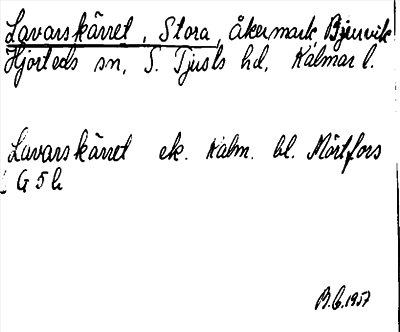 Lavarskärret, Stora, åkermark, Bjursvik
Hjorteds sn, S. Tjusts hd, Kalmar l.
Lavarskärret ek. Kalm. bl. Mörtfors
G 5 b
B.G. 1957